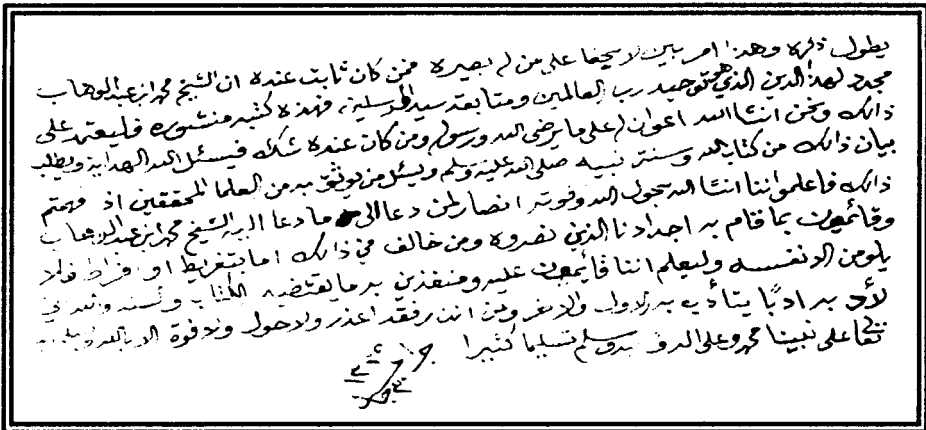 يطول ذكره وهذا امر بين لا يخفا على من له بصيره فمن كان ثابت عنده ان الشيخ محمد ابن عبدالوهاب
مجدد لهذا الدين الذي هو توحيد رب العالمين ومتابعة سيد المرسلين فهذه كتبه منشوره فليعتمد على
ذالك ونحن انشا الله اعوان له على ما يرضي الله ورسوله ومن كان عنده شك فيسئل الله الهدايه ويطلب
بيان ذالك من كتاب الله وسنة نبيه صلى الله عليه وسلم ويسئل من يوثق به من العلما المحققين اذ فهمتم
ذالك فاعلموا اننا انشا الله بحول الله وقوته انصار لمن دعا الى ما دعا اليه الشيخ محمد ابن عبدالوهاب
وقائمين بما قام به اجدادنا الذين نصروه ومن خالف في ذالك اما بتفريط او افراط فلا
يلومن الا نفسه وليعلم اننا قائمين عليه ومنفذين به ما يقتضيه الكتاب والسنه
لأدبه ادبًا يتأدب به الاول والاخر ومن انذر فقد اعذر ولا حول ولا قوة الا بالله
على نبينا محمد وعلى اله وسلم تسليما كثيرا